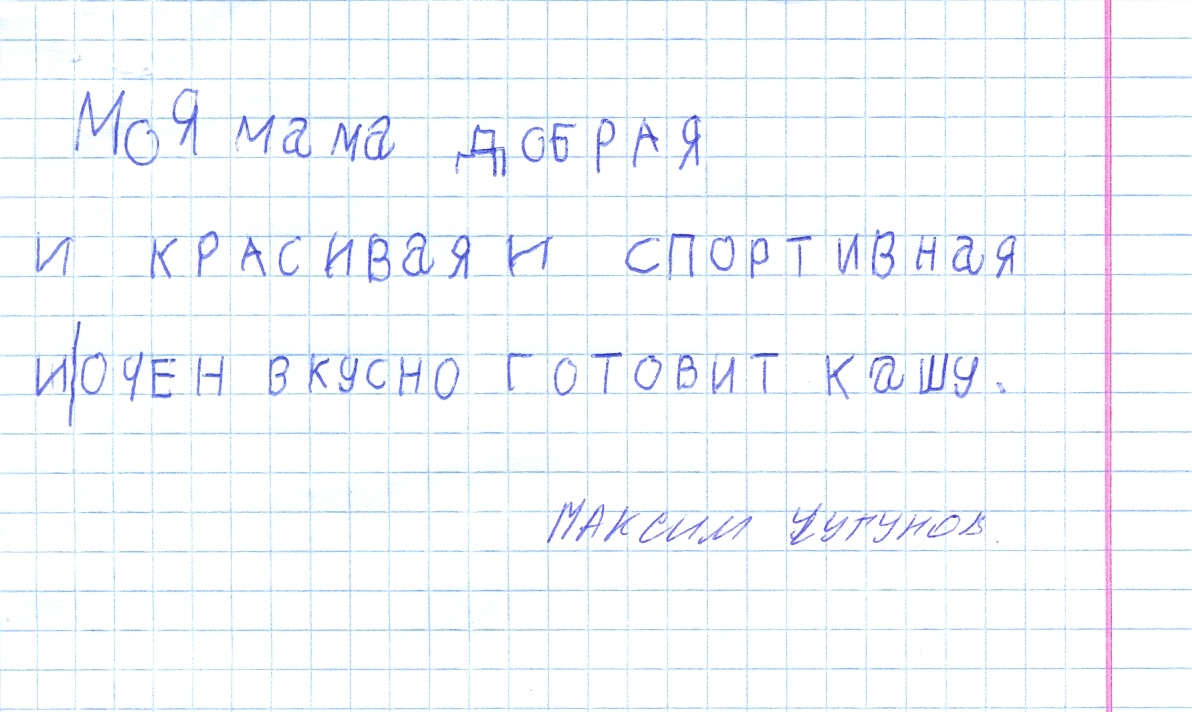 Моя мама добрая
и красивая и спортивная
и очен вкусно готовит кашу.
Максим Чугунов.